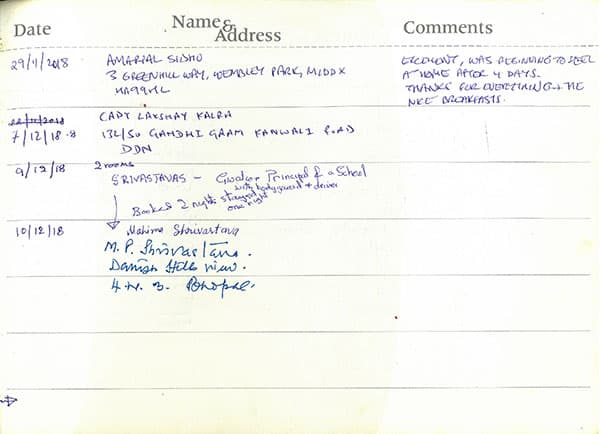 Date Name & Address Comments
29/11/2018 AMARPAL SIDHU EXCELLENT, WAS BEGINNING TO FEEL
3 GREENHILL WAY, WEMBLEY PARK, MIDDX AT HOME AFTER 4 DAYS.
HA99HL THANKS FOR EVERYTHING + THE
NICE BREAKFASTS.
CAPT LAKSHAY KALRA
7/12/18 132/50 GANDHI GRAM KANWALI ROAD
DDN
9/12/18 2 rooms
SRIVASTAVAS - Gwalior Principal of a School
with bodyguard + driver
Booked 2 nights stayed
one night
10/12/18 Mahima Shrivastava
M. P. Shrivastava.
Danish Hills view.
4 N. 3. Bhopal.